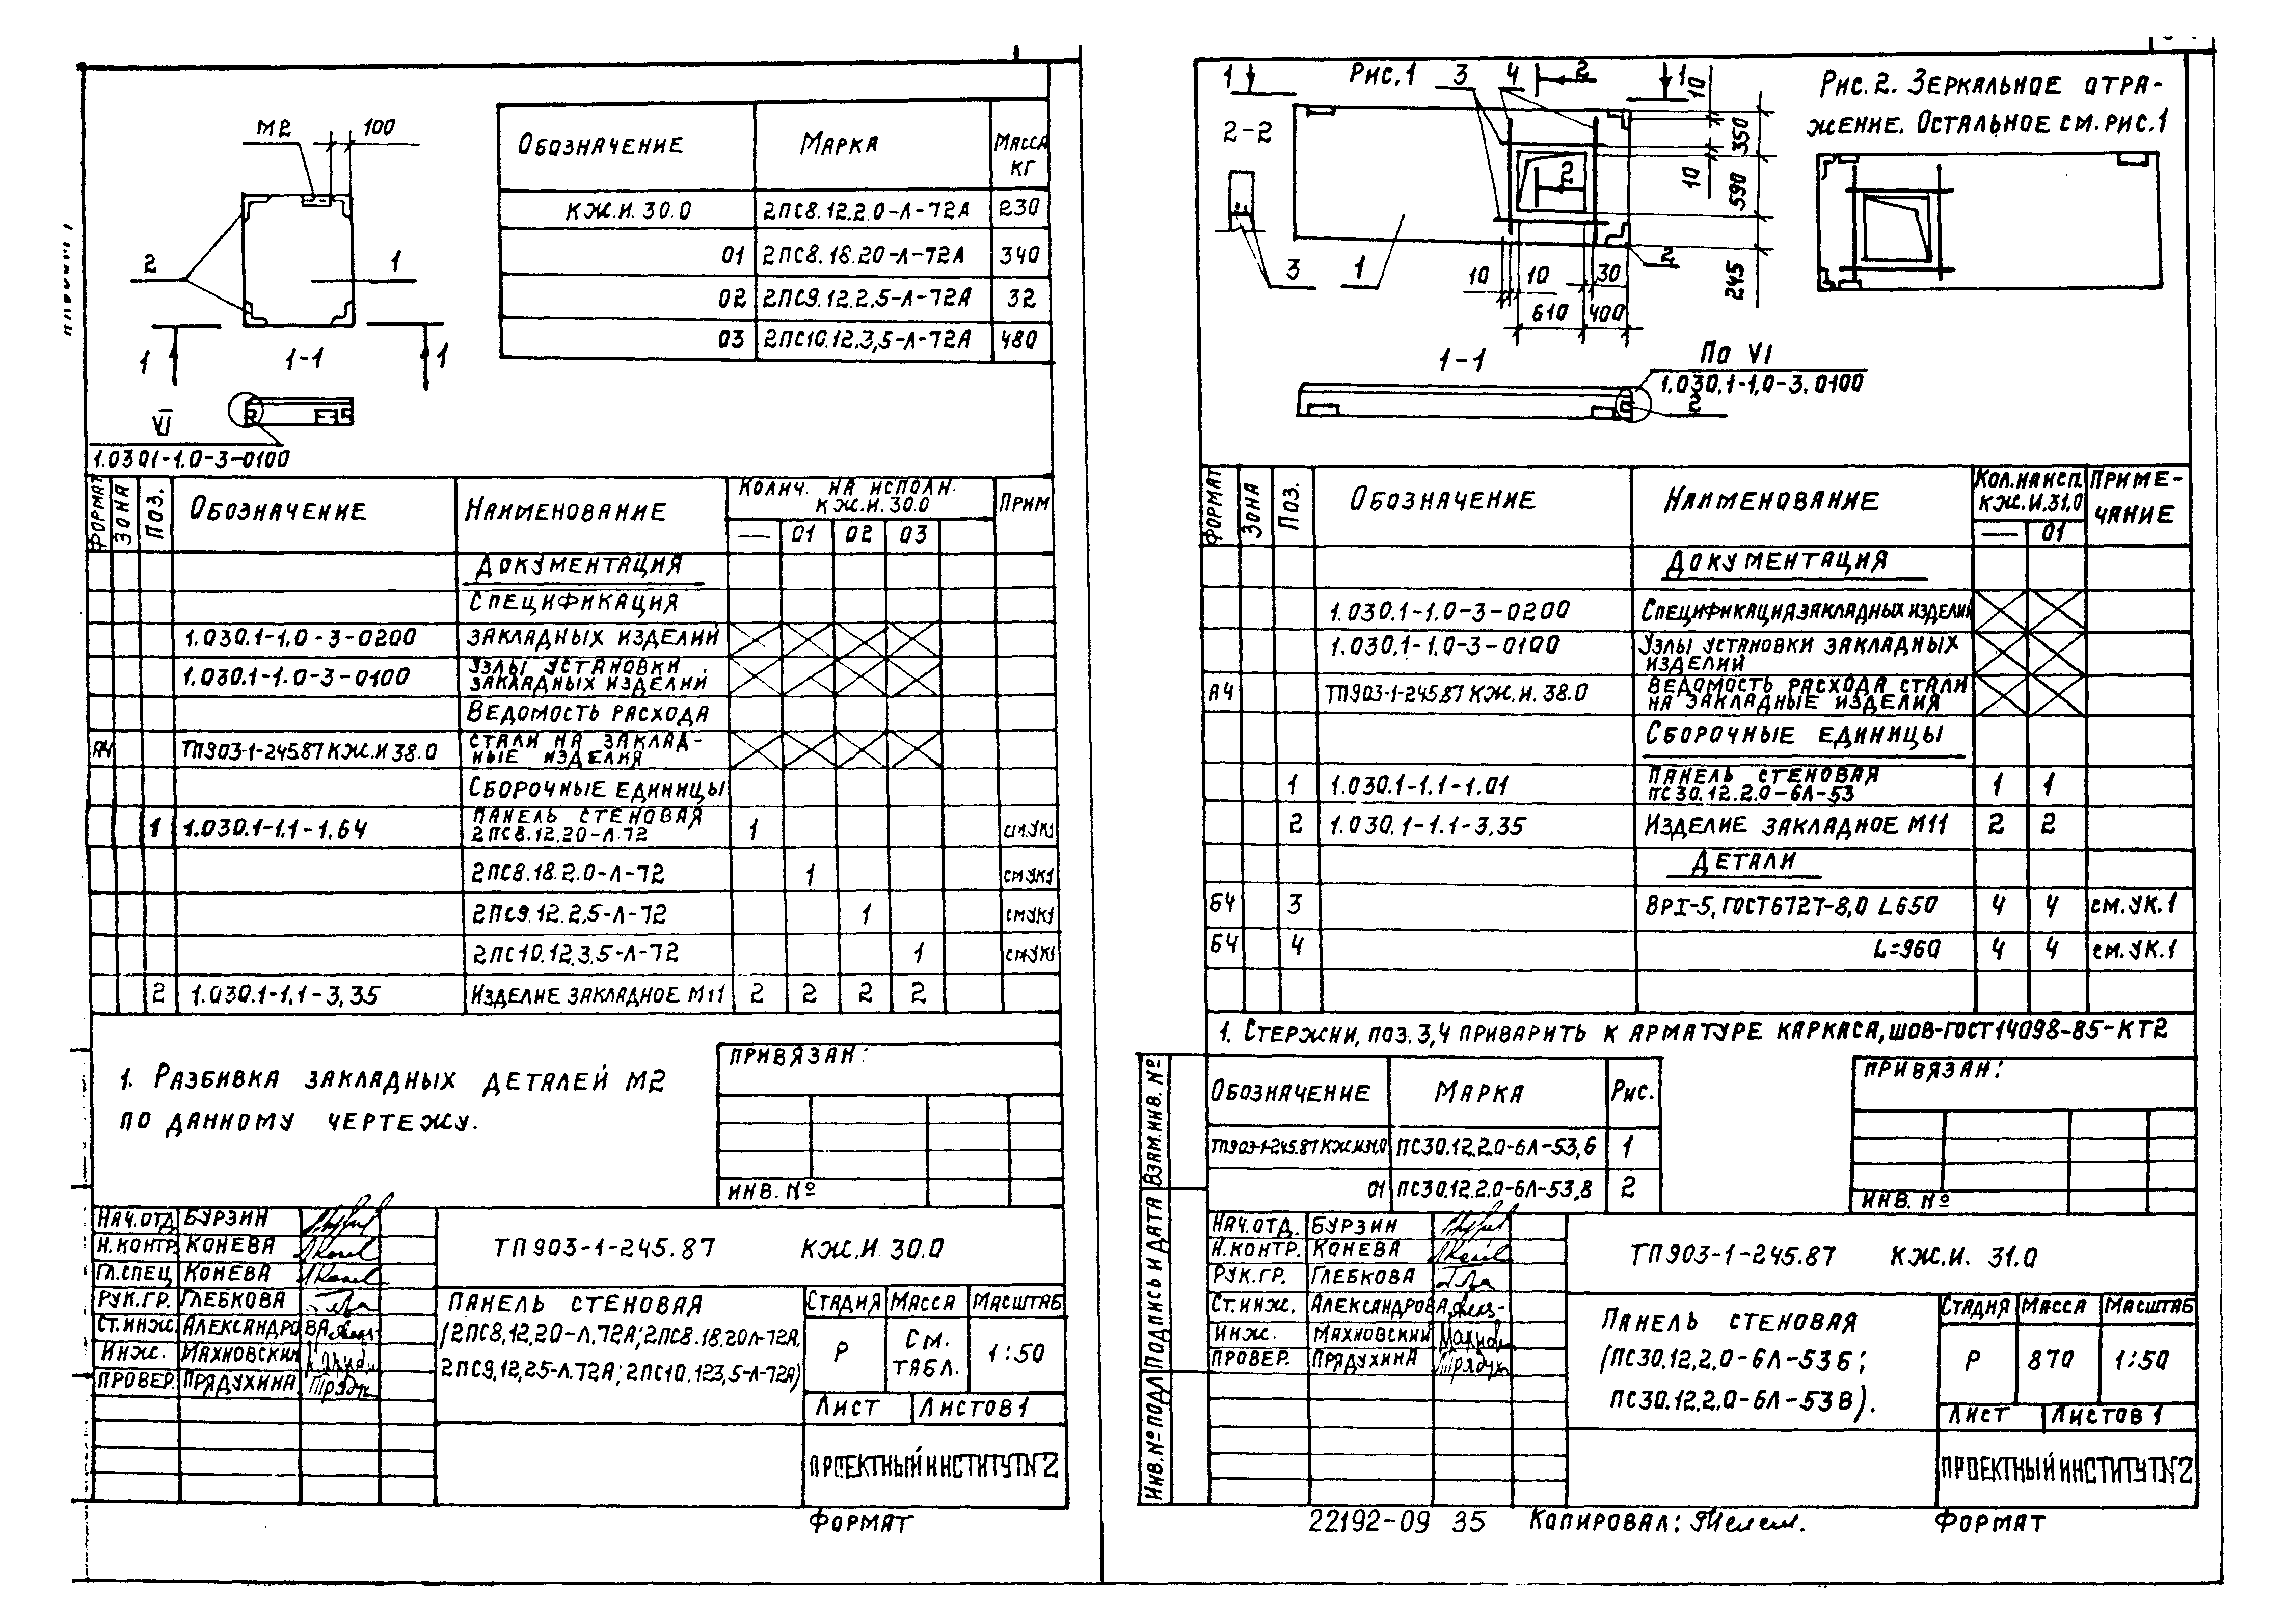 М2 100
2 1
1 1-1 1
VI
1.0301-1.0-3-0100
ОБОЗНАЧЕНИЕ МАРКА МАССА КГ
КЖ.И.30.0 2ПС8.12.2.0-Л-72А 230
01 2ПС8.18.20-Л-72А 340
02 2ПС9.12.2,5-Л-72А 32
03 2ПС10.12.3,5-Л-72А 480
ФОРМАТ ЗОНА ПОЗ. ОБОЗНАЧЕНИЕ НАИМЕНОВАНИЕ КОЛИЧ. НА ИСПОЛН. КЖ.И.30.0 ПРИМ
— 01 02 03
ДОКУМЕНТАЦИЯ
СПЕЦИФИКАЦИЯ
1.030.1-1.0-3-0200 ЗАКЛАДНЫХ ИЗДЕЛИЙ
1.030.1-1.0-3-0100 УЗЛЫ УСТАНОВКИ ЗАКЛАДНЫХ ИЗДЕЛИЙ
ВЕДОМОСТЬ РАСХОДА
А4 ТП903-1-245.87 КЖ.И 38.0 СТАЛИ НА ЗАКЛАД-
НЫЕ ИЗДЕЛИЯ
СБОРОЧНЫЕ ЕДИНИЦЫ
1 1.030.1-1.1-1.64 ПАНЕЛЬ СТЕНОВАЯ 2ПС8.12.20-Л.72 1 СМ.УК1
2ПС8.18.2.0-Л-72 1 СМ.УК1
2ПС9.12.2,5-Л-72 1 СМ.УК1
2ПС10.12.3,5-Л-72 1 СМ.УК1
2 1.030.1-1.1-3,35 ИЗДЕЛИЕ ЗАКЛАДНОЕ М11 2 2 2 2
1. РАЗБИВКА ЗАКЛАДНЫХ ДЕТАЛЕЙ М2
ПО ДАННОМУ ЧЕРТЕЖУ.
ПРИВЯЗАН:
ИНВ. №
НАЧ.ОТД БУРЗИН
Н.КОНТР. КОНЕВА
ГЛ.СПЕЦ КОНЕВА
РУК.ГР. ГЛЕБКОВА
СТ.ИНЖ. АЛЕКСАНДРОВА
ИНЖ. МАХНОВСКИЙ
ПРОВЕР. ПРЯДУХИНА
ТП903-1-245.87 КЖ.И.30.0
ПАНЕЛЬ СТЕНОВАЯ
(2ПС8,12,20-Л.72А; 2ПС8.18.20Л-72А,
2ПС9,12,25-Л.72А; 2ПС10.123,5-Л-72А)
СТАДИЯ МАССА МАСШТАБ
Р СМ. ТАБЛ. 1:50
ЛИСТ ЛИСТОВ 1
ПРОЕКТНЫЙ ИНСТИТУТ№2
ФОРМАТ
1 РИС.1 3 4 2 1
2-2
3 1 2
2
10 350
10 590
245
10 10 30
610 400
1-1
ПО VI
1.030.1-1,0-3.0100
2
РИС. 2. ЗЕРКАЛЬНОЕ ОТРА-
ЖЕНИЕ. ОСТАЛЬНОЕ СМ. РИС.1
ФОРМАТ ЗОНА ПОЗ. ОБОЗНАЧЕНИЕ НАИМЕНОВАНИЕ КОЛ.НАИСП. КЖ.И.31.0 ПРИМЕ-
ЧАНИЕ
— 01
ДОКУМЕНТАЦИЯ
1.030.1-1.0-3-0200 СПЕЦИФИКАЦИЯ ЗАКЛАДНЫХ ИЗДЕЛИЙ
1.030.1-1.0-3-0100 УЗЛЫ УСТАНОВКИ ЗАКЛАДНЫХ
ИЗДЕЛИЙ
А4 ТП903-1-245.87 КЖ.И.38.0 ВЕДОМОСТЬ РАСХОДА СТАЛИ
НА ЗАКЛАДНЫЕ ИЗДЕЛИЯ
СБОРОЧНЫЕ ЕДИНИЦЫ
1 1.030.1-1.1-1.01 ПАНЕЛЬ СТЕНОВАЯ ПС30.12.2.0-6Л-53 1 1
2 1.030.1-1.1-3,35 ИЗДЕЛИЕ ЗАКЛАДНОЕ М11 2 2
ДЕТАЛИ
Б4 3 ВРI-5, ГОСТ6727-8,0 L650 4 4 СМ.УК.1
Б4 4 L=960 4 4 СМ.УК.1
1. СТЕРЖНИ, ПОЗ. 3,4 ПРИВАРИТЬ К АРМАТУРЕ КАРКАСА, ШОВ-ГОСТ14098-85-КТ2
ОБОЗНАЧЕНИЕ МАРКА РИС.
ТП903-1-245.87 КЖ.И31.0 ПС30.12.2.0-6Л-53,6 1
01 ПС30.12.2.0-6Л-53,8 2
ПРИВЯЗАН:
ИНВ. №
ИНВ.№ПОДЛ ПОДПИСЬ И ДАТА ВЗАМ.ИНВ. №
НАЧ.ОТД. БУРЗИН
Н.КОНТР. КОНЕВА
РУК.ГР. ГЛЕБКОВА
СТ.ИНЖ. АЛЕКСАНДРОВА
ИНЖ. МАХНОВСКИЙ
ПРОВЕР. ПРЯДУХИНА
ТП903-1-245.87 КЖ.И. 31.0
ПАНЕЛЬ СТЕНОВАЯ
(ПС30.12,2,0-6Л-53Б;
ПС30.12.2.0-6Л-53В).
СТАДИЯ МАССА МАСШТАБ
Р 870 1:50
ЛИСТ ЛИСТОВ 1
ПРОЕКТНЫЙ ИНСТИТУТ№2
22192-09 35 КОПИРОВАЛ: ФОРМАТ